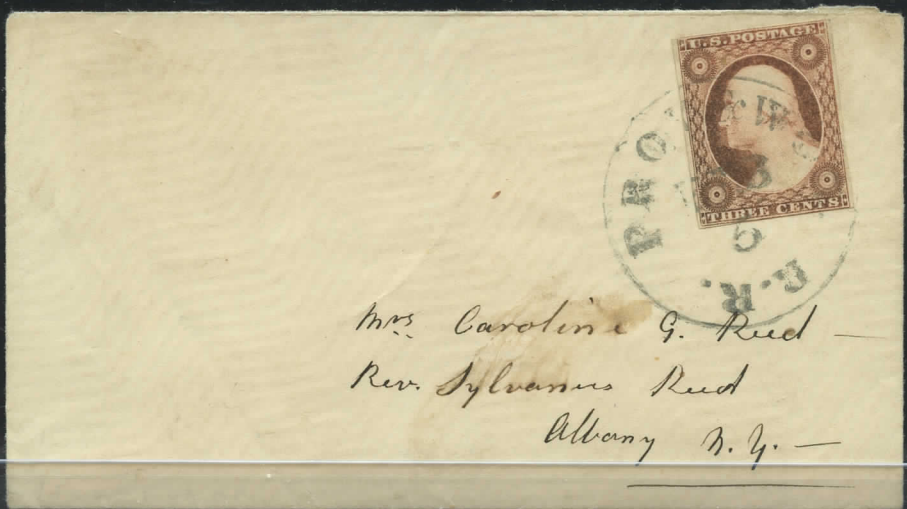 U.S. POSTAGE
THREE CENTS
PRO
R.R.
5
Mrs Caroline G. Reed —
Rev. Sylvanus Reed
Albany N.Y. —